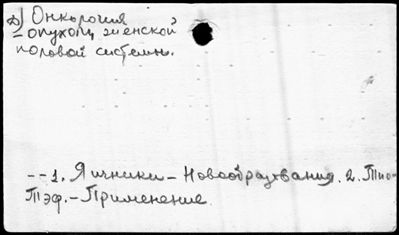 д) Онкология
- опухоли женской
половой системы.
-- 1. Яичники - Новообразования. 2. Тио-
Тэф. - Применение